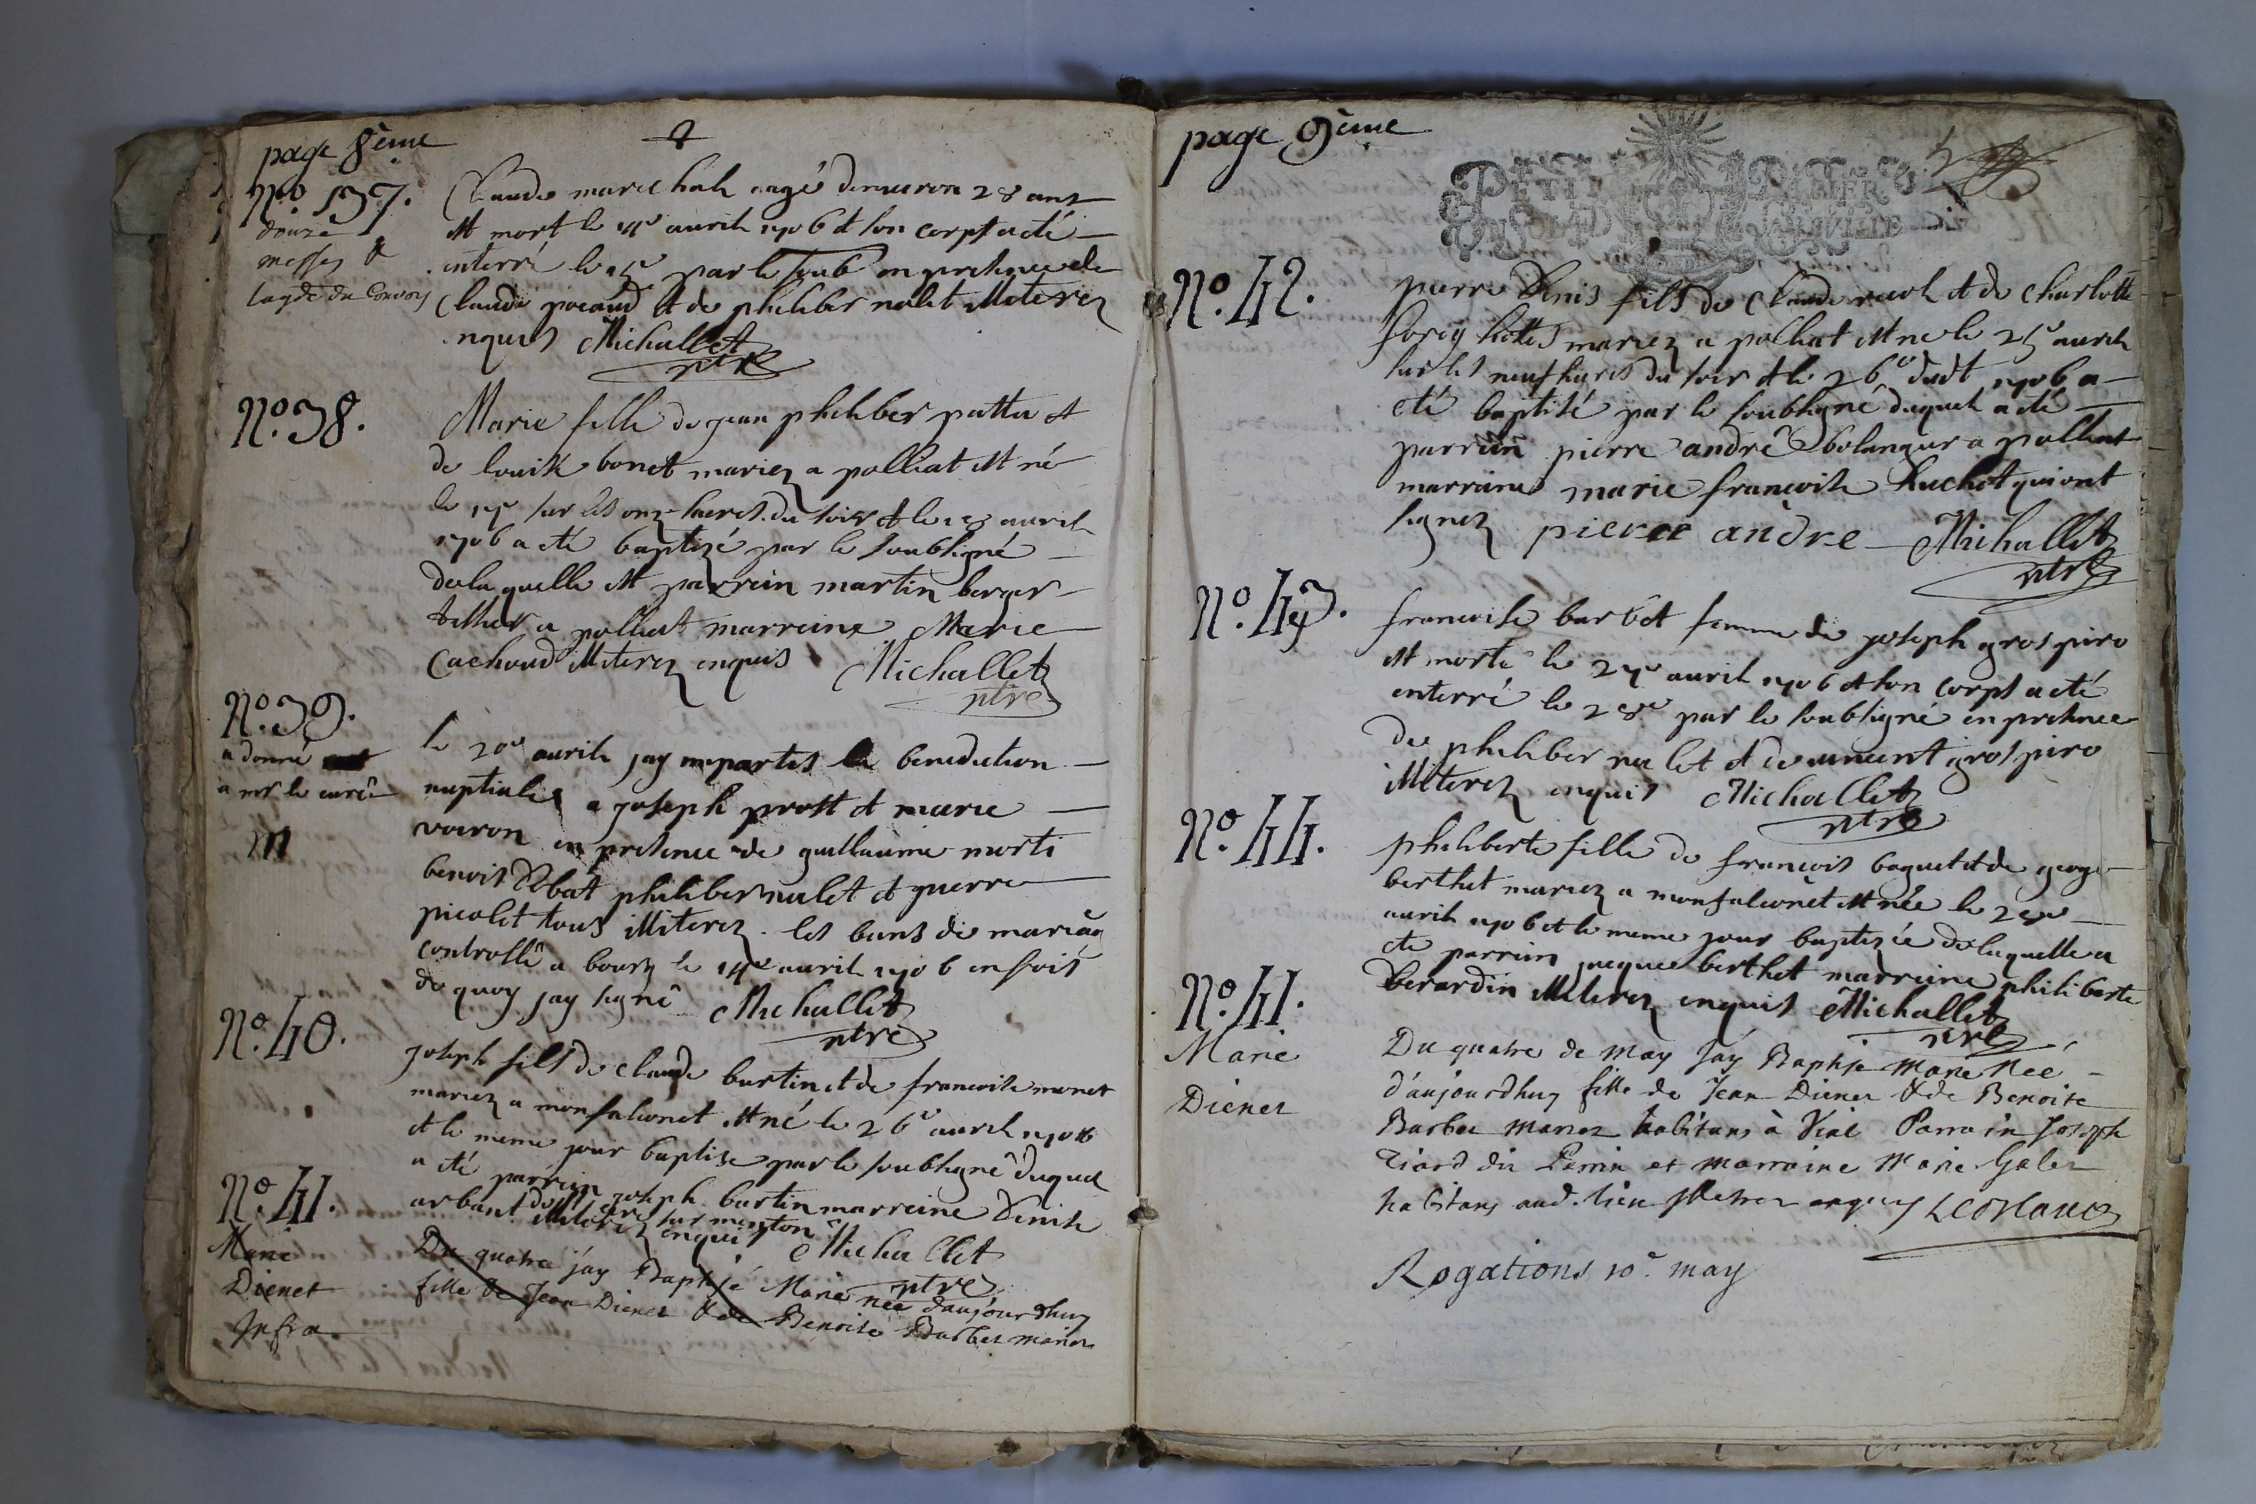 page 8ème
No 37.
douze
messes &
Claude marechal aagé denuiron 28 ans
est mort le 14e auril 1706 et son corps a eté
enterré le 15e par le soub en presence de
Claude pocaud et de philiber nalet illiterez
enquis Michallet
ptre
No. 38.
Marie fille de jean philiber pattu et
de louise bonet mariez a polliat est né
le 17e sur les onze heures du soir et le 18 auril
1706 a eté baptizé par le soubsigné
de la quelle est parrein martin berger
a polliat marreine Marie
Cachoud illiterez enquis Michallet
ptre
No. 39.
a donné
a mr le curé
m
le 20e auril jay impartis la benediction
nuptiale a joseph prost et marie
voiron en presence de guillaume morti
benoist philiber nalet et pierre
picolet tous illiterez. les bans de mariag
controllé a bourg le 14e auril 1706 en fois
de quoy jay signé Michallet
ptre
No. 40.
joseph fils de claude burtin et de francoise monet
mariez a monfalconet est né le 26e auril 1706
et le meme jour baptise par le soubsigné duquel
a eté parrein joseph burtin marreine Denise
arbant illiterez enquis Michallet
ptre
No. 41.
Marie
Dienet
Infra.
Du quatre jáy Baptisé Marie née daujourdhuy
fille de Jean Dienet & de Benoite Barbet mariez
page 9ème
PETIT PAPIER
No. 42.
pierre Denis fils de Claude et de charlotte
mariez a polliat est ne le 25e auril
sur les neuf hures du soir et le 26e dudt 1706 a
eté baptisé par le soubsigné duquel a eté
parrein pierre andré bolanger a polliat
marreine marie francoise huchet qui ont
signez pierre andre Michallet
ptre
No. 43.
francoise barbet femme de joseph grospiro
est morte le 27e auril 1706 et son corps a eté
enterré le 28e par le soubsigné en presence
de philiber nalet et de grospiro
illiterez enquis Michallet
ptre
No. 44.
philiberte fille de francois baguet et de george
berthet mariez a monfalconet est née le 28e
auril 1706 et le meme jour baptizée de laquelle a
ete parrein jacque berthet marreine philiberte
berardin illiterez enquis Michallet
ptre
No. 41.
Marie
Dienet
Du quatre de may jáy Baptisé Marie Née
d'aujourdhuy fille de Jean Dienet & de Benoite
Barbet mariez habitans à Vial Parrain Joseph
Tiard dit Perrin et marraine Marie Galet
habitans aud. lieu illetrez enquis
Rogations 10e. may